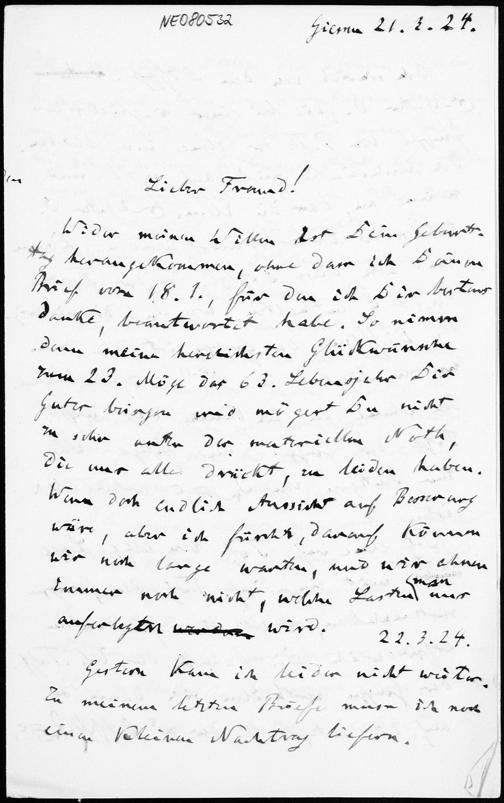 NE080532
Giessen 21.3.24.
Lieber Freund!
Wider meinen Willen ist Dein Geburts-
tag herangekommen, ohne dass ich Deinen
Brief vom 18.1., für den ich Dir bestens
danke, beantwortet habe. So nimm
denn meine herzlichsten Glückwünsche
zum 23. Möge das 63. Lebensjahr Dir
Gutes bringen und mögest Du nicht
zu sehr unter der materiellen Noth,
die uns alle drückt, zu leiden haben.
Wenn doch endlich Aussicht auf Besserung
wäre, aber ich fürchte, darauf können
wir noch lange warten, und wir ahnen
immer noch nicht, welche Lasten man uns
auferlegen wird.
22.3.24.
Gestern kam ich leider nicht weiter.
Zu meinem letzten Briefe muss ich noch
einen kleinen Nachtrag liefern.